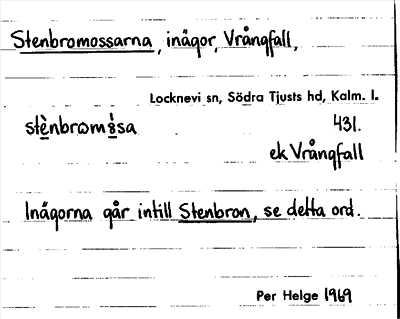 Stenbromossarna, inägor, Vrångfall,
Locknevi sn, Södra Tjusts hd, Kalm. l.
431.
ek Vrångfall
Inägorna går intill Stenbron, se detta ord.
Per Helge 1969